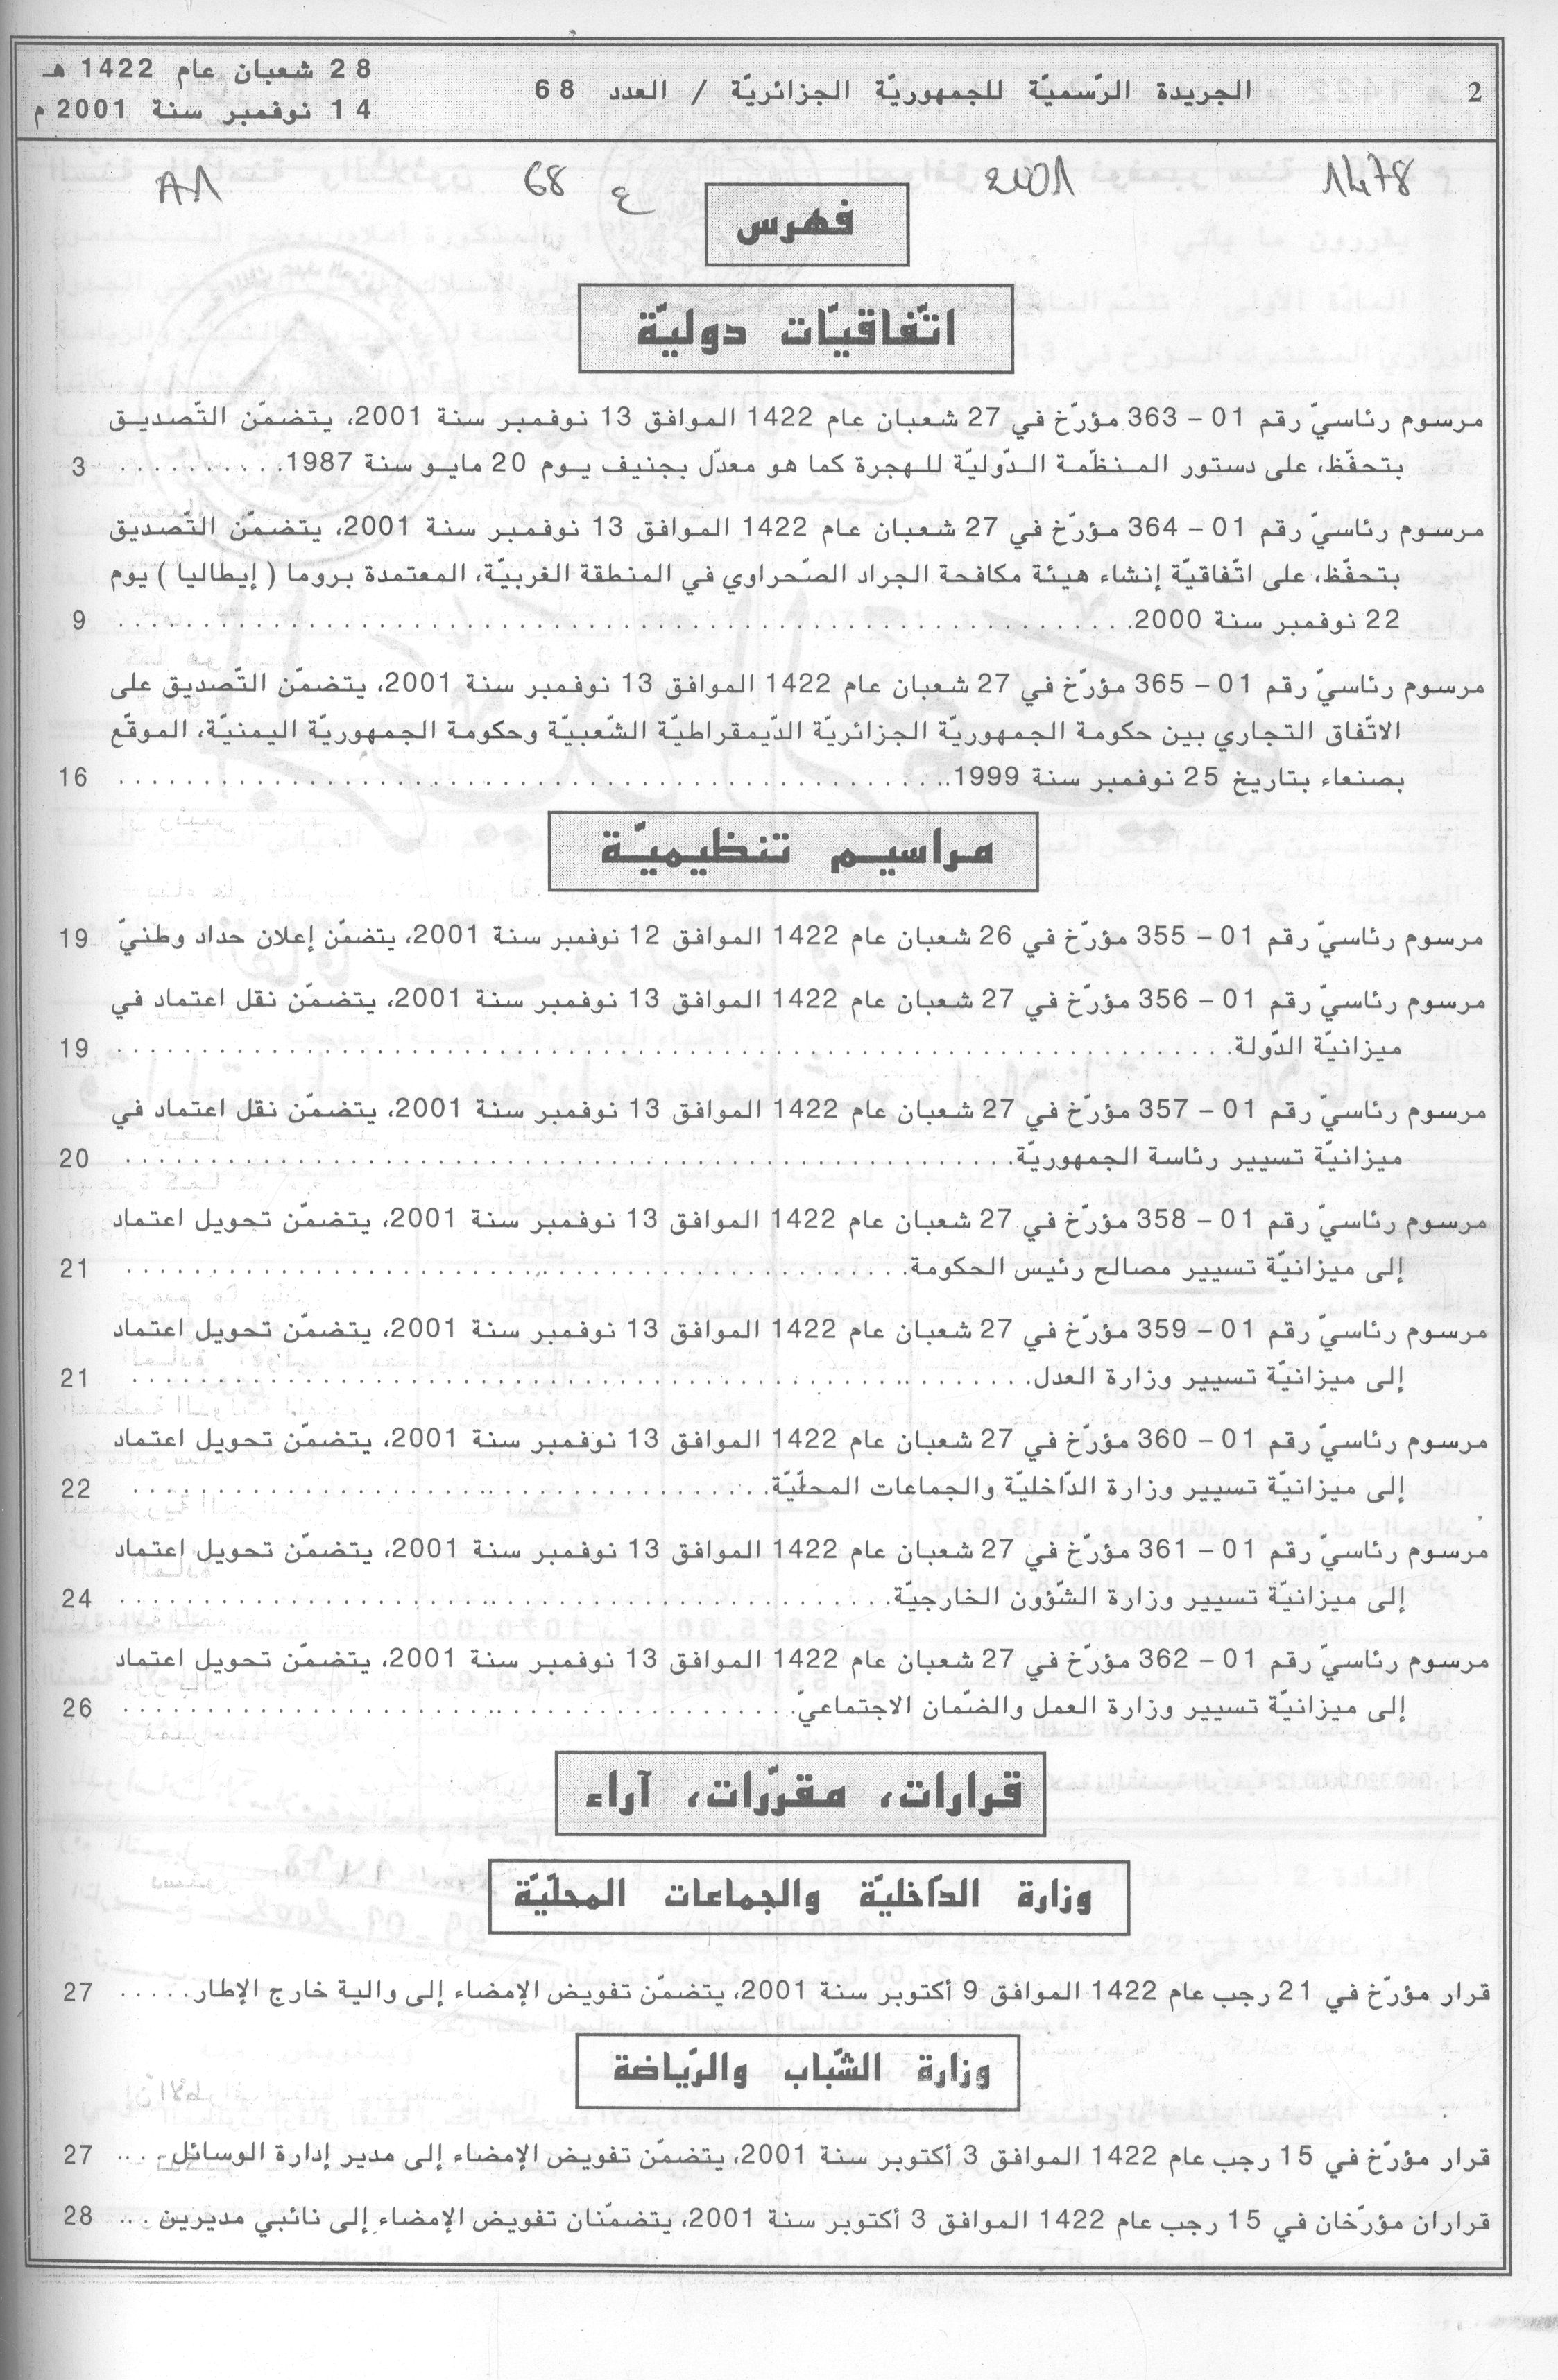 2
الجريدة الرّسميّة للجمهوريّة الجزائريّة / العدد 68
28 شعبان عام 1422 هـ
14 نوفمبر سنة 2001 م
1478 2001 ع 68 A1
فهرس
اتّفاقيّات دوليّة
مرسوم رئاسيّ رقم 01 – 363 مؤرّخ في 27 شعبان عام 1422 الموافق 13 نوفمبر سنة 2001، يتضمّن التّصديق
بتحفّظ، على دستور المنظّمة الدّوليّة للهجرة كما هو معدّل بجنيف يوم 20 مايو سنة 1987. . . . . . . . . . 3
مرسوم رئاسيّ رقم 01 – 364 مؤرّخ في 27 شعبان عام 1422 الموافق 13 نوفمبر سنة 2001، يتضمّن التّصديق
بتحفّظ، على اتّفاقيّة إنشاء هيئة مكافحة الجراد الصّحراوي في المنطقة الغربيّة، المعتمدة بروما ( إيطاليا ) يوم
22 نوفمبر سنة 2000. . . . . . . . . . 9
مرسوم رئاسيّ رقم 01 – 365 مؤرّخ في 27 شعبان عام 1422 الموافق 13 نوفمبر سنة 2001، يتضمّن التّصديق على
الاتّفاق التجاري بين حكومة الجمهوريّة الجزائريّة الدّيمقراطيّة الشّعبيّة وحكومة الجمهوريّة اليمنيّة، الموقّع
بصنعاء بتاريخ 25 نوفمبر سنة 1999. . . . . . . . . . 16
مراسيم تنظيميّة
مرسوم رئاسيّ رقم 01 – 355 مؤرّخ في 26 شعبان عام 1422 الموافق 12 نوفمبر سنة 2001، يتضمّن إعلان حداد وطنيّ 19
مرسوم رئاسيّ رقم 01 – 356 مؤرّخ في 27 شعبان عام 1422 الموافق 13 نوفمبر سنة 2001، يتضمّن نقل اعتماد في
ميزانيّة الدّولة. . . . . . . . . . 19
مرسوم رئاسيّ رقم 01 – 357 مؤرّخ في 27 شعبان عام 1422 الموافق 13 نوفمبر سنة 2001، يتضمّن نقل اعتماد في
ميزانيّة تسيير رئاسة الجمهوريّة. . . . . . . . . . 20
مرسوم رئاسيّ رقم 01 – 358 مؤرّخ في 27 شعبان عام 1422 الموافق 13 نوفمبر سنة 2001، يتضمّن تحويل اعتماد
إلى ميزانيّة تسيير مصالح رئيس الحكومة. . . . . . . . . . 21
مرسوم رئاسيّ رقم 01 – 359 مؤرّخ في 27 شعبان عام 1422 الموافق 13 نوفمبر سنة 2001، يتضمّن تحويل اعتماد
إلى ميزانيّة تسيير وزارة العدل. . . . . . . . . . 21
مرسوم رئاسيّ رقم 01 – 360 مؤرّخ في 27 شعبان عام 1422 الموافق 13 نوفمبر سنة 2001، يتضمّن تحويل اعتماد
إلى ميزانيّة تسيير وزارة الدّاخليّة والجماعات المحلّيّة. . . . . . . . . . 22
مرسوم رئاسيّ رقم 01 – 361 مؤرّخ في 27 شعبان عام 1422 الموافق 13 نوفمبر سنة 2001، يتضمّن تحويل اعتماد
إلى ميزانيّة تسيير وزارة الشّؤون الخارجيّة. . . . . . . . . . 24
مرسوم رئاسيّ رقم 01 – 362 مؤرّخ في 27 شعبان عام 1422 الموافق 13 نوفمبر سنة 2001، يتضمّن تحويل اعتماد
إلى ميزانيّة تسيير وزارة العمل والضّمان الاجتماعيّ. . . . . . . . . . 26
قرارات، مقرّرات، آراء
وزارة الدّاخليّة والجماعات المحلّيّة
قرار مؤرّخ في 21 رجب عام 1422 الموافق 9 أكتوبر سنة 2001، يتضمّن تفويض الإمضاء إلى والية خارج الإطار. . . . . 27
وزارة الشّباب والرّياضة
قرار مؤرّخ في 15 رجب عام 1422 الموافق 3 أكتوبر سنة 2001، يتضمّن تفويض الإمضاء إلى مدير إدارة الوسائل. . . . 27
قراران مؤرّخان في 15 رجب عام 1422 الموافق 3 أكتوبر سنة 2001، يتضمّنان تفويض الإمضاء إلى نائبي مديرين . . . 28